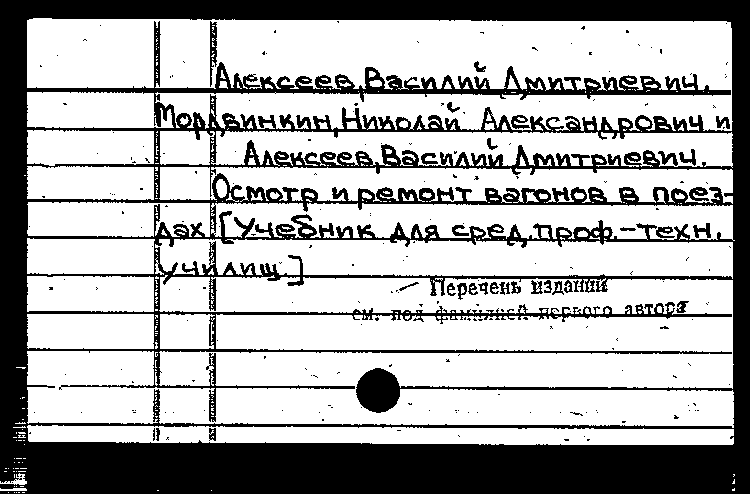 Алексеев, Василий Дмитриевич.
Мордвинкин, Николай Александрович и
Алексеев, Василий Дмитриевич.
Осмотр и ремонт вагонов в поез-
дах [Учебник для сред. проф.-техн.
училищ.]
Перечень изданий
см. под фамилией первого автора